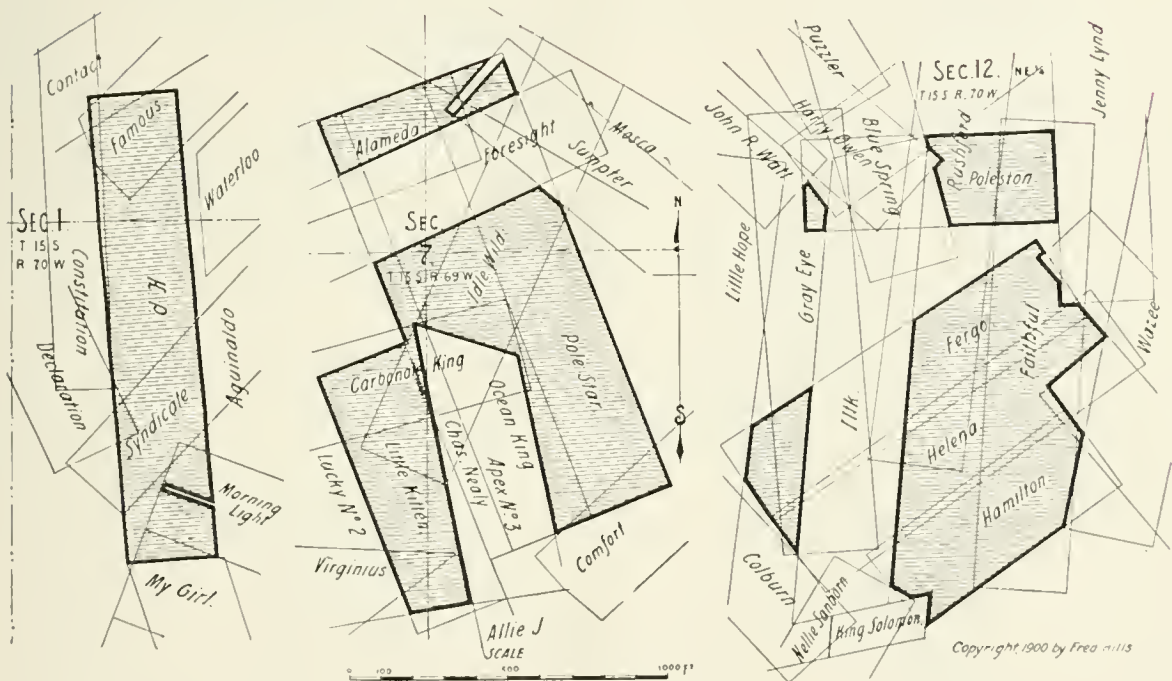 Contact
Famous
Waterloo
SEC. 1
T 15 S
R 70 W
Constitution
K P
Declaration
Aguinaldo
Syndicate
Morning
Light
My Girl.
Alameda
Foresight
Sumpter
Mosca
SEC.
7.
T 15 S R 69 W
Idle Wild
N
S
Pole Star
Carbonate King
Ocean King
Apex No 3
Chas. Nealy
Little Killen
Lucky No 2
Virginius
Comfort
Allie J
SCALE
0 100 500 1000 FT
Puzzler
SEC. 12. NE ¼
T 15 S R. 70 W
Jenny Lynd
John R Watt
Harry Owen
Blue Spring
Rushford
Poleston
Little Hope
Gray Eye
Ilk
Fergo
Faithful
Wazee
Helena
Hamilton
Colburn
Nellie Sanborn
King Solomon
Copyright, 1900 by Fred Hills